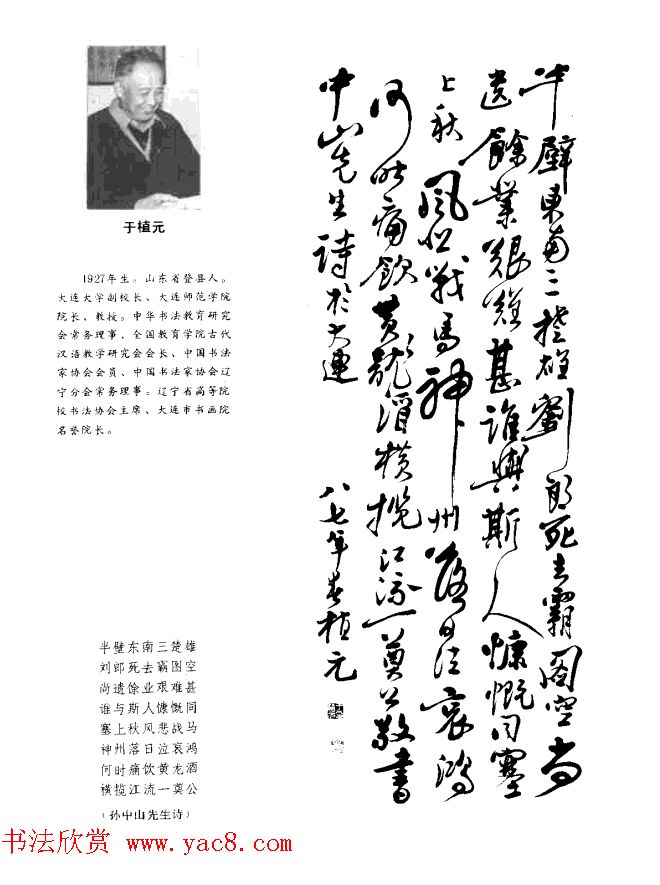 于植元
1927年生。山东省登县人。
大连大学副校长、大连师范学院
院长、教授。中华书法教育研究
会常务理事、全国教育学院古代
汉语教学研究会会长、中国书法
家协会会员、中国书法家协会辽
宁分会常务理事。辽宁省高等院
校书法协会主席、大连市书画院
名誉院长。
半壁東南三楚雄劉郎死去霸圖空尚
遺餘業艱難甚誰與斯人慷慨同塞
上秋風悲戰馬神州落日泣哀鴻
何時痛飲黃龍酒橫攬江流一奠公敬書
中山先生詩於大連 八七年春植元
半壁东南三楚雄
刘郎死去霸图空
尚遗馀业艰难甚
谁与斯人慷慨同
塞上秋风悲战马
神州落日泣哀鸿
何时痛饮黄龙酒
横揽江流一奠公
(孙中山先生诗)
书法欣赏 www.yac8.com